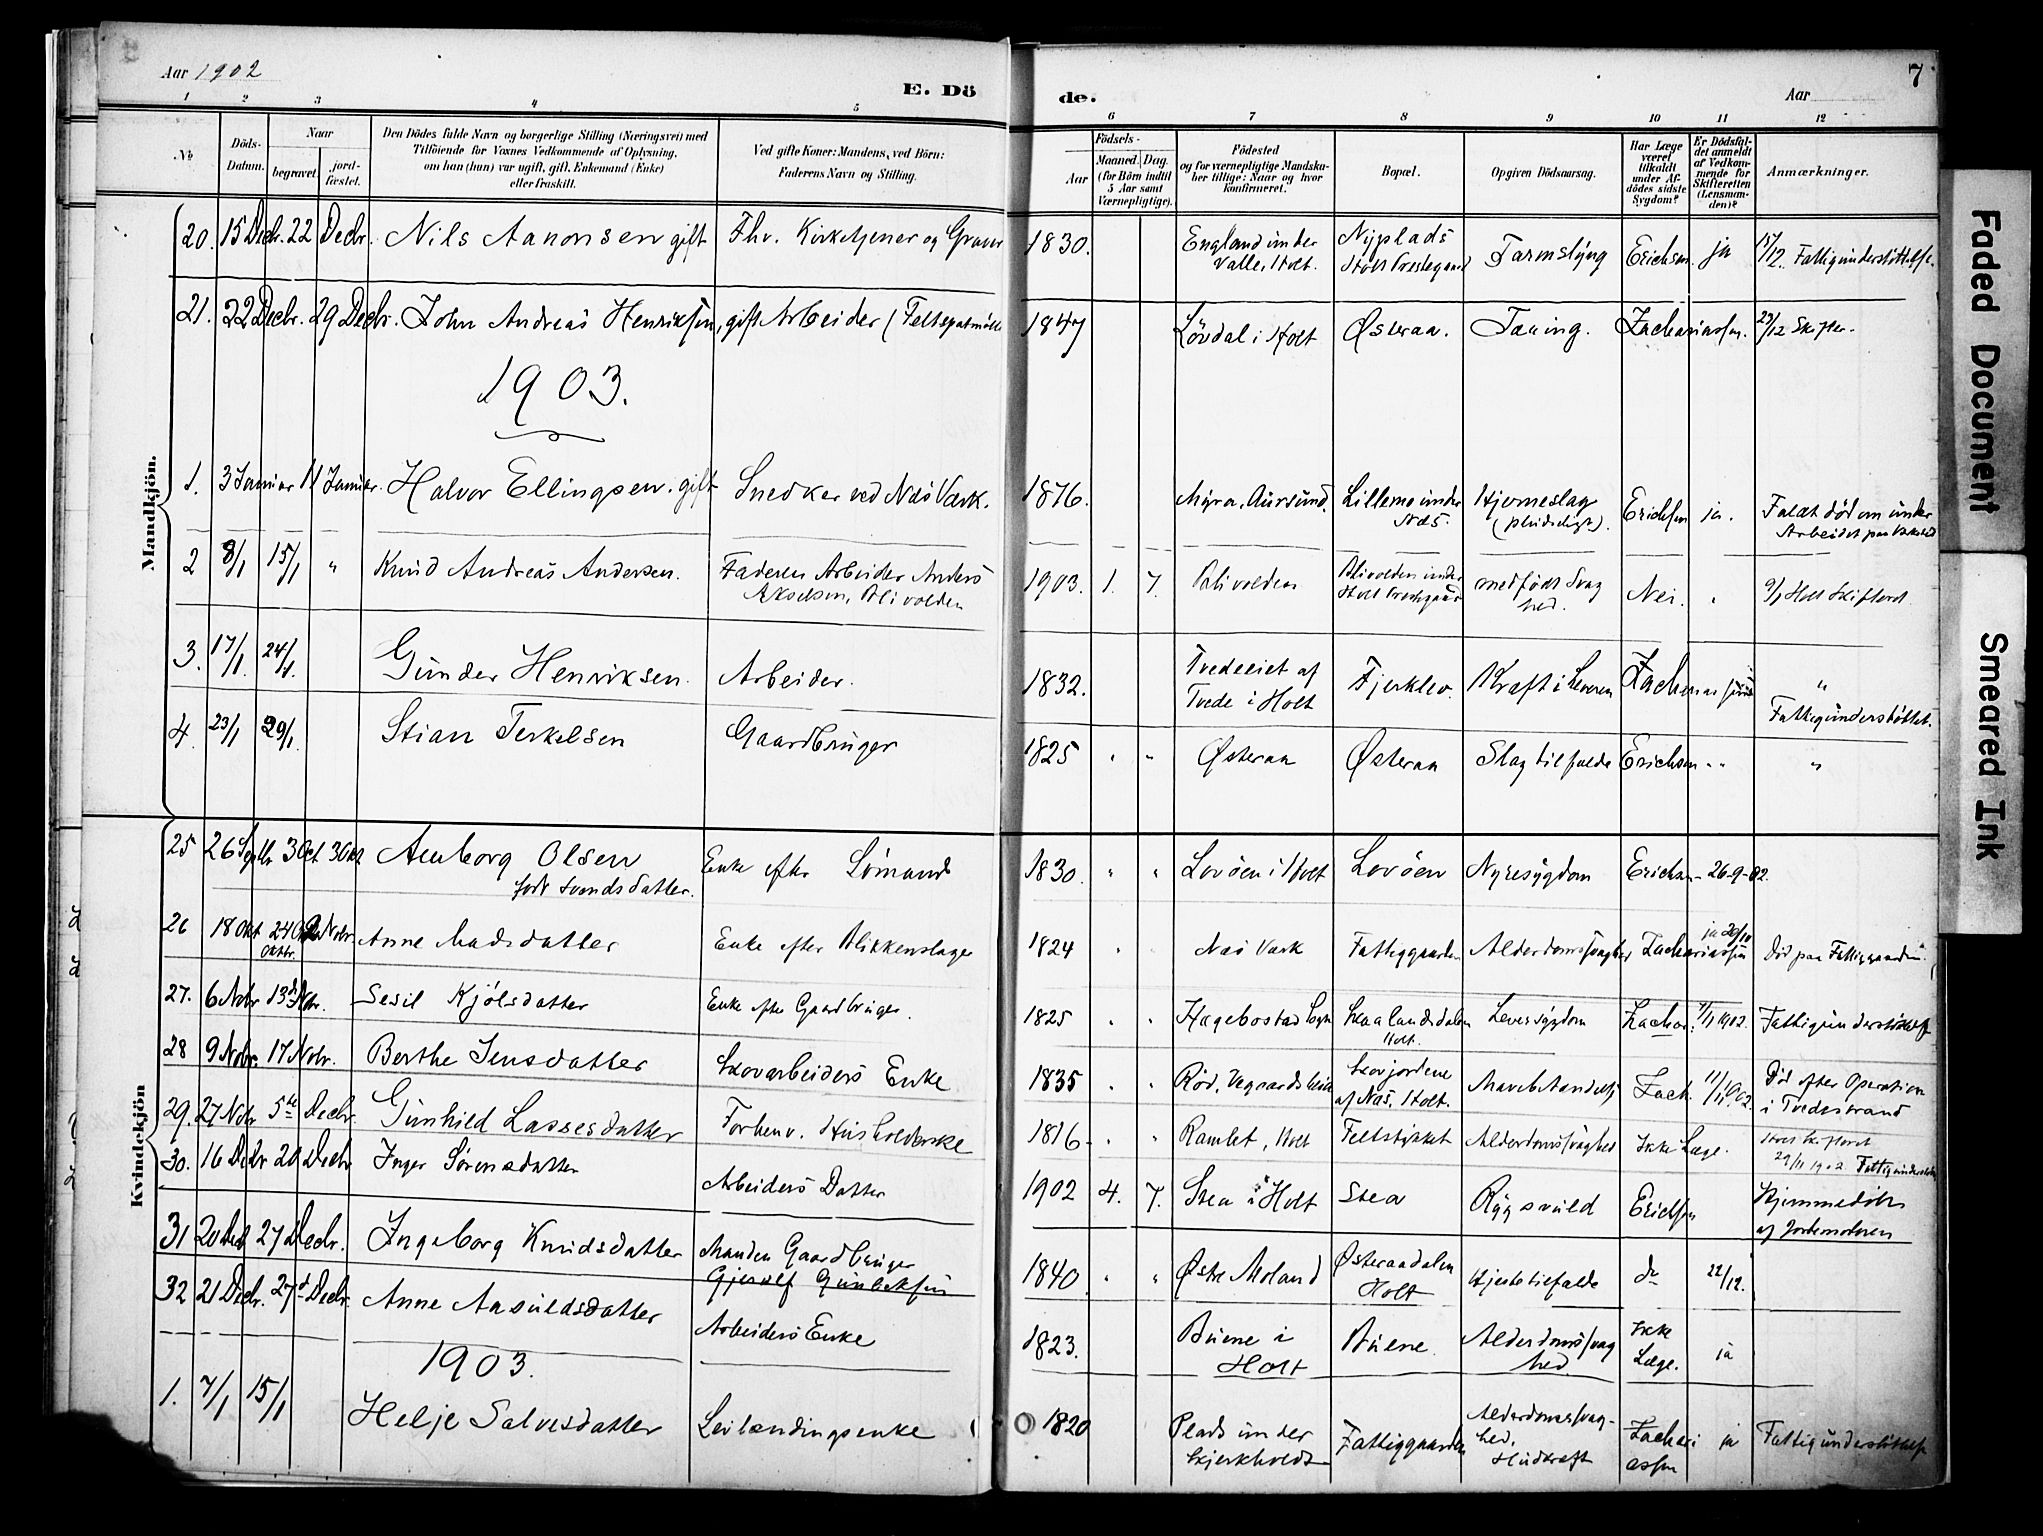 Aar 1902
E. Dö
de.
7
Aar
1 2 3 4 5 6 7 8 9 10 11 12
No
Döds-
Datum.
Naar
begravet.
jord-
fæstet.
Den Dödes fulde Navn og borgerlige Stilling (Næringsvei) med
Tilföiende for Voxnes Vedkommende af Oplysning,
om han (hun) var ugift, gift, Enkemand (Enke)
eller fraskilt.
Ved gifte Koner: Mandens, ved Börn:
Faderens Navn og Stilling.
Födsels-
Aar
Maaned. Dag.
(for Börn indtil
5 Aar samt
Værnepligtige).
Födested
og for værnepligtige Mandska-
ber tillige: Naar og hvor
konfirmeret.
Bopæl.
Opgiven Dödsaarsag.
Har Læge
været
tilkaldt
under Af-
dödes sidste
Sygdom?
Er Dödsfal-
det anmeldt
af Vedkom-
mende for
Skifteretten
(Lensman-
den)?
Anmærkninger.
Mandkjön.
20. 15 Decbr. 22 Decbr. Nils Aanonsen gift Fhv. Kirketjener og Graver 1830. England under Valle, Holt. Nyplads Holt Prestegaard Tarmslyng Erichsen ja 15/12. Fattigunderstöttelse.
21. 22 Decbr. 29 Decbr. John Andreas Henriksen, gift Arbeider (Feltspatmölle 1847 Lövdal i Holt Østeraa. Tæring. Zachariassen. 23/12 Skifter.
1903.
1. 3 Januar 11 Januar. Halvor Ellingsen. gift Snedker ved Næs Værk. 1876. Myra, Aursund. Lillemo under Næs. Hjerneslag (pludseligt). Erichsen ja. Faldt död om under Arbeidet paa
2 8/1 15/1 " Knud Andreas Andersen. Faderen Arbeider Anders Akselsen, Blivolden 1903. 1. 7. Blivolden Blivolden under Holt Prestegaard medfödt Svaghed. Nei. 9/1 Holt Skifteret
3. 17/1. 24/1. Gunder Henriksen. Arbeider. 1832. Tvedeeiet af Tvede i Holt Fjerklev. Kræft i Leveren Zachariassen " Fattigunderstöttet.
4. 23/1 29/1. Stian Terkelsen Gaardbruger 1825 " " Østeraa Østeraa Slagtilfælde Erichsen " "
Kvindekjön
25 26 Septbr 3 Oct. 3 Okt Amborg Olsen födt Svendsdatter. Enke efter Sömand 1830. " " Lovöen i Holt Lovöen Nyresygdom Erichsen 26-9-02.
26 18 Okt 24 Oktbr. 2 Nobr. Anne Madsdatter Enke efter Blikkenslager 1824 " Næs Værk Fattiggaarden Alderdomssvaghed Zachariassen ja 20/10 Död paa Fattiggaarden.
27. 6 Nobr 13de Nbr. Sesil Kjölsdatter Enke efter Gaardbruger. 1825 " " Hægebostad Sogn Skaalandsdalen Holt. Leversygdom Zachar. 7/11 1902. Fattigunderstöttelse
28 9 Nobr. 17 Nobr. Berthe Jensdatter Skovarbeiders Enke 1835 " " Röd, Vegaardsheia Skovjordene af Næs, Holt. Mavebetændelse Zach. 11/11 1902. Död efter Operation i Tvedestrand
29. 27 Nobr 5te Decbr. Gunhild Lassesdatter Forhenv. Husholderske 1816. " " Ramlet, Holt Feltstykket Alderdomssvaghed Ikke Læge. 29/11 1902. Fattigunderstöttet
30. 16 Decbr 20 Decbr Inger Sörensdatter Arbeiders Datter 1902 4. 7. Stea i Holt Stea Rygsvuld Erichsen Hjemmedöbt af Jordemoderen
31 20 Decb 27 Decbr. Ingeborg Knudsdatter Manden Gaardbruger Gjerulf Gunleksen 1840 " " Østre Moland Østeraadalen Holt Hjertetilfælde do 22/12.
32 21 Decbr. 27de Decbr. Anne Aasuldsdatter Arbeiders Enke 1823. Buene i Holt Buene. Alderdomssvaghed Ikke Læge. ja
1903.
1. 7/1 15/1 Helje Salvesdatter Leilændingsenke 1820 Plads under Skjerkholdt Fattiggaarden Alderdomssvaghed, Hudkræft Zachariassen ja Fattigunderstöttelse
Faded Document
Smeared Ink